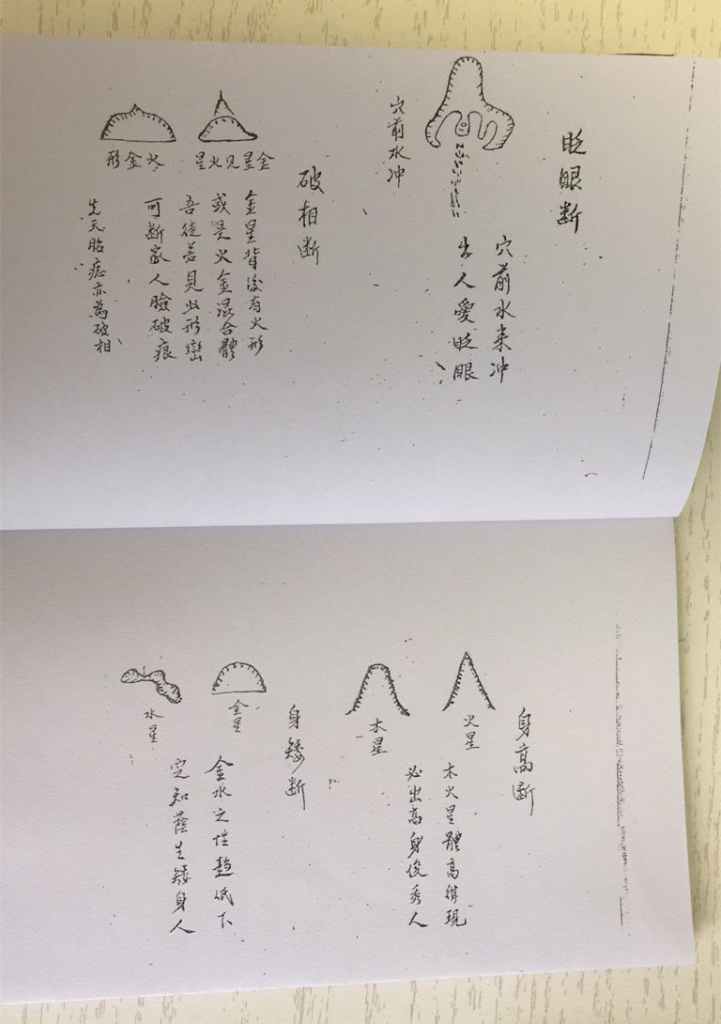 眨眼断
穴前水来冲
出人愛眨眼
穴前水冲
破相断
金星見火星
火金形
金星背後有火形
或是火金混合體
吾徒若見此形巒
可断家人臉破痕
先天胎痣亦為破相
身高断
火星
木星
木火星體高排現
必出高身俊秀人
身矮断
金星
水星
金水之性趨低下
定知蔭生矮身人